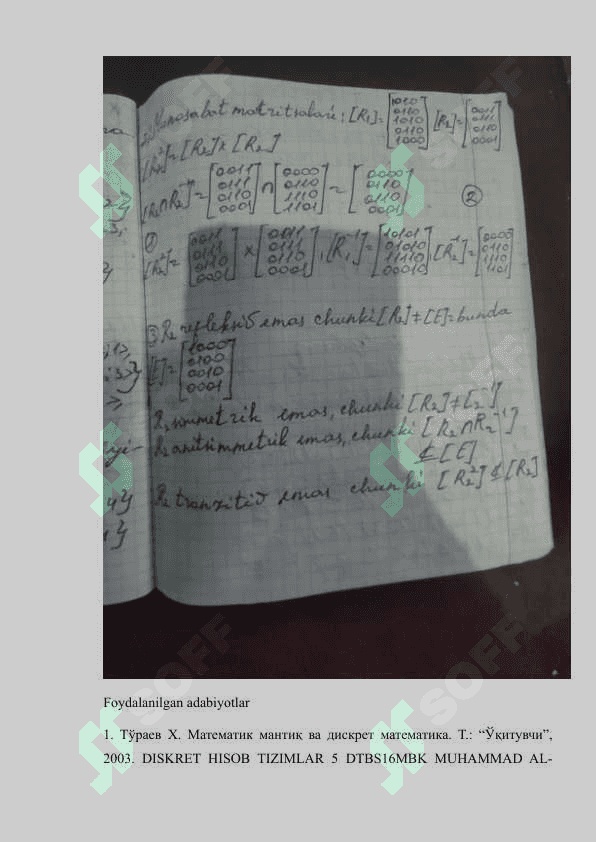 Munosabat matritsalari; [R₁]= [1010 0110 1010 0110 1000] [R₂]= [0011 0111 0110 0001]
[R₂²]=[R₂]x[R₂]
[R₂∩R₂⁻¹]= [0011 0111 0110 0001] ∩ [0000 0110 1110 1101] = [0000 0110 0110 0001] ②
①
[R₂²]= [0011 0111 0110 0001] x [0011 0111 0110 0001], [R₁⁻¹]= [10101 01010 11110 00010], [R₂⁻¹]= [0000 0110 1110 1101]
③ R₂ refleksiv emas chunki [R₂]≠[E]= bunda
[E]= [1000 0100 0010 0001]
R₂ simmetrik emas, chunki [R₂]≠[₂⁻¹]
R₂ anitsimmetrik emas, chunki [R₂∩R₂⁻¹]
≰[E]
R₂ tranzitiv emas chunki [R₂²]≰[R₂]
SOFF
SOFF
SOFF
SOFF
SOFF
SOFF
Foydalanilgan adabiyotlar
1. Тўраев Х. Математик мантиқ ва дискрет математика. Т.: “Ўқитувчи”,
2003. DISKRET HISOB TIZIMLAR 5 DTBS16MBK MUHAMMAD AL-